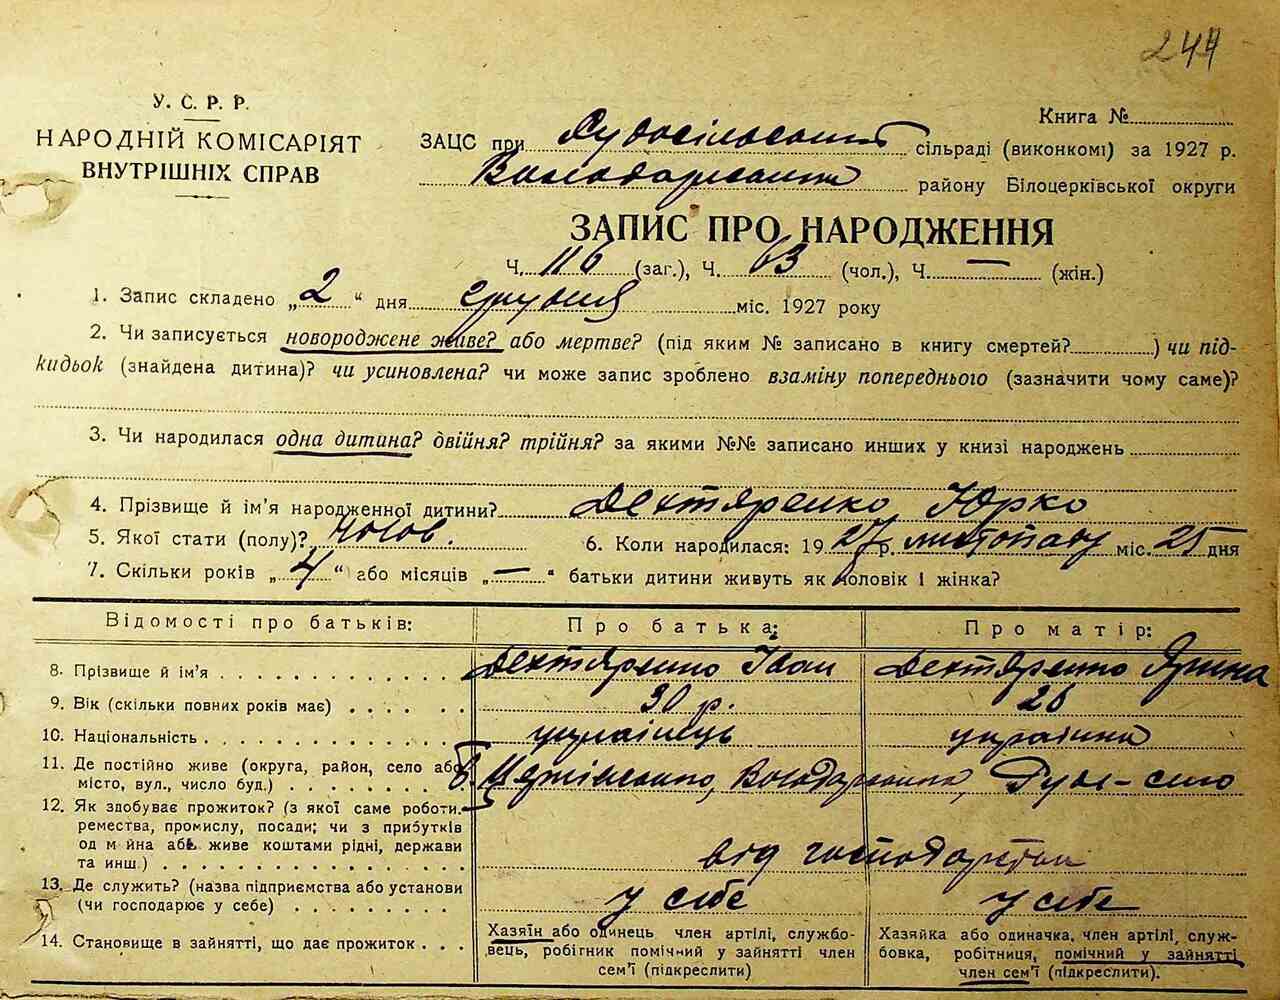 244
У. С. Р. Р.
НАРОДНІЙ КОМІСАРІЯТ
ВНУТРІШНІХ СПРАВ
Книга №
ЗАЦС при сільраді (виконкомі) за 1927 р.
Володарського району Білоцерківської округи
ЗАПИС ПРО НАРОДЖЕННЯ
Ч. 116 (заг.), Ч. 63 (чол.), Ч. — (жін.)
1. Запис складено „2“ дня грудня міс. 1927 року
2. Чи записується новороджене живе? або мертве? (під яким № записано в книгу смертей? ) чи під-
кидьок (знайдена дитина)? чи усиновлена? чи може запис зроблено взаміну попереднього (зазначити чому саме)?
3. Чи народилася одна дитина? двійня? трійня? за якими №№ записано инших у книзі народжень
4. Прізвище й ім'я народженної дитини? Дехтяренко Юрко
5. Якої стати (полу)? чолов. 6. Коли народилася: 1927 р. листопаду міс. 25 дня
7. Скільки років „4“ або місяців „—“ батьки дитини живуть як чоловік і жінка?
Відомості про батьків: Про батька: Про матір:
8. Прізвище й ім'я Дехтяренко Іван Дехтяренко Ярина
9. Вік (скільки повних років має) 30 р. 26
10. Національність українець українка
11. Де постійно живе (округа, район, село або
місто, вул., число буд.) Володарського, Руде-село
12. Як здобуває прожиток? (з якої саме роботи.
ремества, промислу, посади; чи з прибутків
од майна або живе коштами рідні, держави
та инш.) від господарства
13. Де служить? (назва підприємства або установи
(чи господарює у себе) у себе у себе
14. Становище в зайнятті, що дає прожиток
Хазяїн або одинець член артілі, службо-
вець, робігник помічний у зайнятті член
сем'ї (підкреслити)
Хазяйка або одиначка, член артілі, служ-
бовка, робітниця, помічний у зайнятті
член сем'ї (підкреслити).